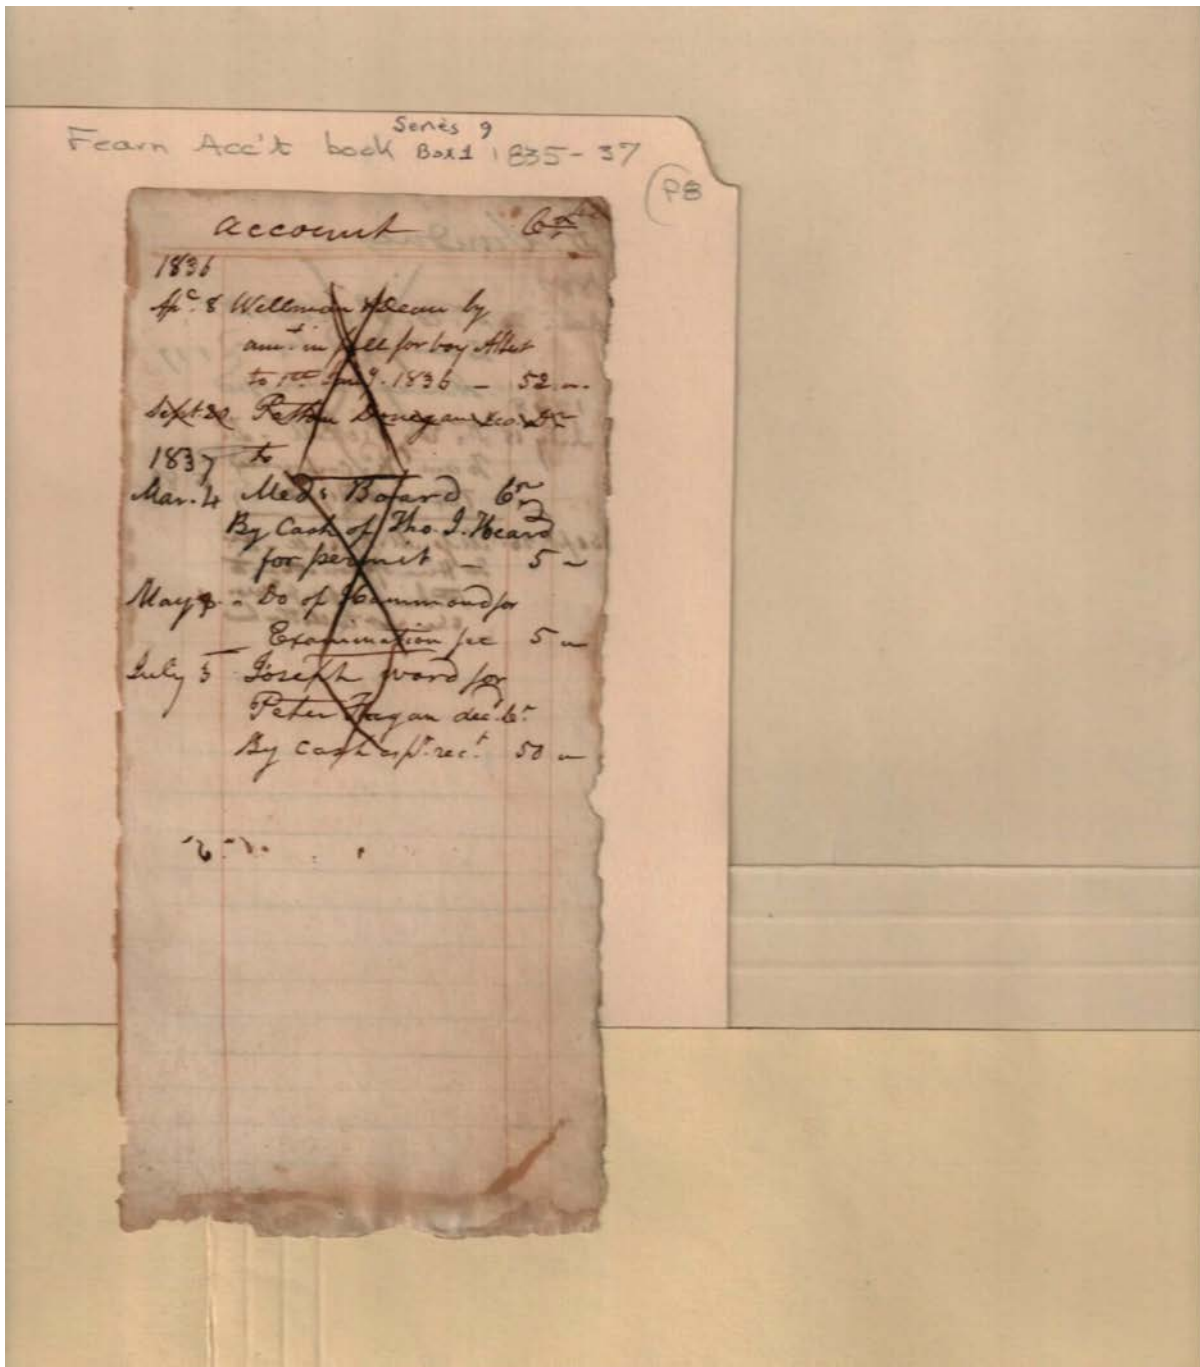 Series 9
Fearn Acc't book Box 1 1835-37
P8
account
1836
Ap. 8 Wellman & Dean by
amt. in full for boy Albert
to 1st 1836 - 52
Sept. 20 Patton Donegan & co Dr
1837 to
Mar. 4 Med. Board Cr
By Cash of Tho. J. Heard
for permit - 5
May Do of Hammond for
Examination fee 5
July 5 Joseph Ward for
Peter Fagan dec.
By Cash as pr. rect. 50